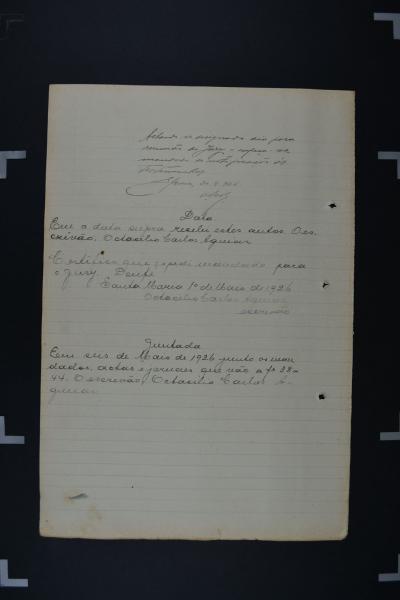 Achando-se designado dia para
reunião do Jury
mandado de intimação de
testemunhas
Data
Em a data supra recebi estes autos. O es-
crivão, Octacilio Carlos Aguiar
Certifico que expedi mandado para
o Jury. Doufé
Santa Maria 1º de Maio de 1926
Octacilio Carlos Aguiar
escrivão
Juntada
Em seis de Maio de 1926 junto os man
dados, actas e jornaes que vão a fs 38 a
44. O escrivão, Octacilio Carlos A-
guiar